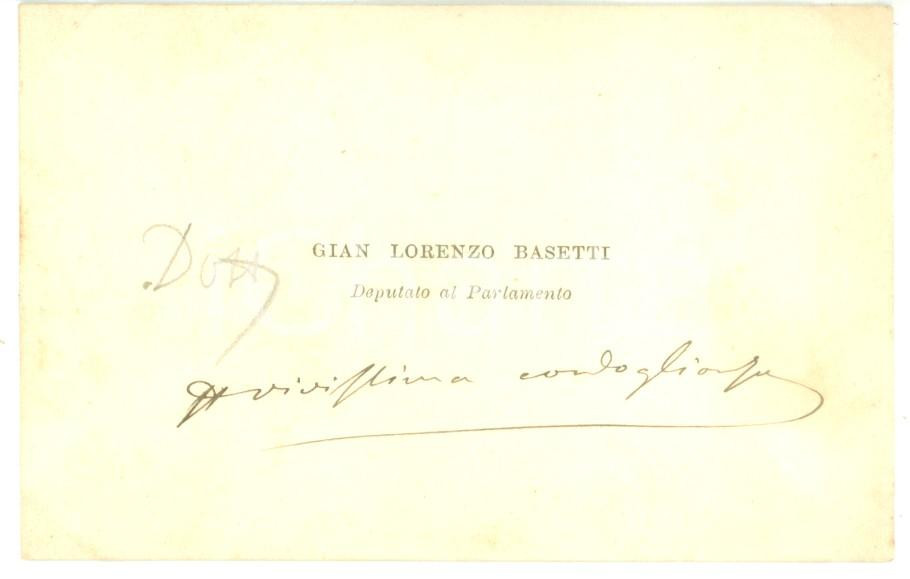 Dott
GIAN LORENZO BASETTI
Deputato al Parlamento
vivissima condoglianza